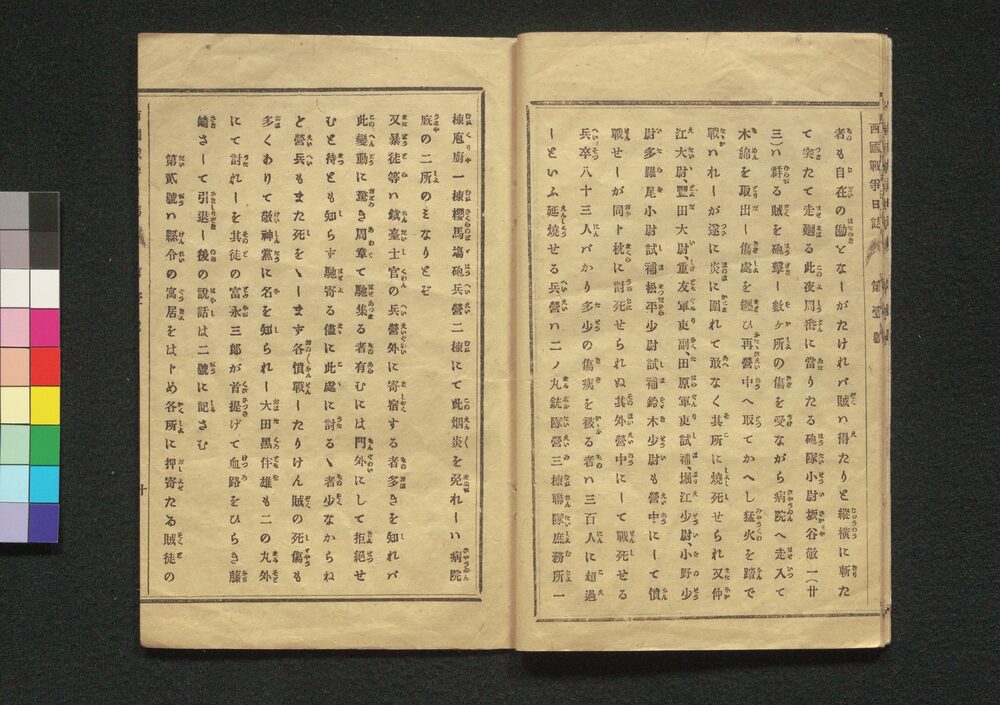 西國戰爭日誌 第壹號
者も自在の働となーがたけれバ賊ハ得たりと縱横に斬た
て突たて走廻る此夜局番に當りたる砲隊小尉坂谷敬一(廿
三)ハ群る賊を砲撃ー數ヶ所の傷を受ながら病院へ走入て
木綿を取出ー傷處を纏ひ再營中へ取てかへし猛火を踏で
戰ハれーが遂に炎に圍れて敢なく其所に燒死せられ又仲
江大尉、豐田大尉、重友軍吏副、田原軍吏試補、堀江少尉、小野少
尉多羅尾小尉試補松平少尉試補鈴木少尉も營中にーて憤
戰せーが同ト枕に討死せられぬ其外營中にーて戰死せる
兵卒八十三人バかり多少の傷痍を被る者ハ三百人に超過
ーといふ延燒せる兵營ハ二ノ丸銃隊營三棟聯隊庶務所一
棟庖廚一棟櫻馬塲砲兵營二棟にて此烟炎を免れーハ病院
廐の二所のミなりとぞ
又暴徒等ハ鎮臺士官の兵營外に寄宿する者多きを知れバ
此變動に驚き周章て馳集る者有むには門外にして拒絶せ
むと待とも知らす馳寄る儘に此處に討るヽ者少なからね
と營兵もまた死をヽーます各憤戰ーたりけん賊の死傷も
多くありて敬神黨に名を知られー大田黒伴雄も二の丸外
にて討れーを其徒の富永三郎が首提げて血路をひらき藤
崎さーて引退ー後の説話は二號に記さむ
第貳號ハ縣令の寓居をはトめ各所に押寄たる賊徒の
十